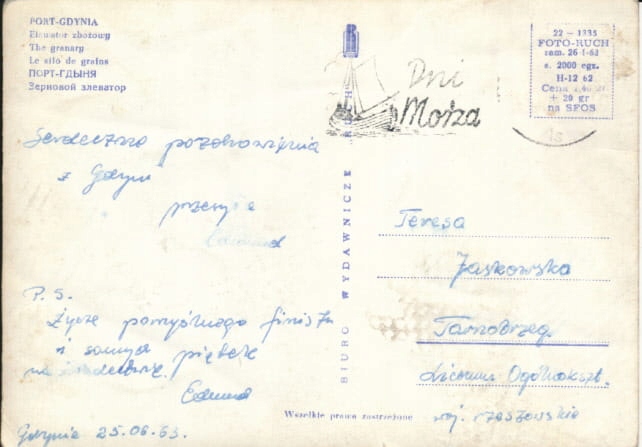 PORT-GDYNIA
Elewator zbożowy
The granary
Le silo de grains
ПОРТ-ГДЫНЯ
Зерновой элеватор
22 - 1335
FOTO-RUCH
zam. 26-I-62
s. 2000 egz.
H-12 62
Cena 1,40 zł
+ 20 gr
na SFOS
Dni
Morza
Serdeczne pozdrowienia
z Gdyni
przesyła
Edmund
P. S.
Życzę pomyślnego finiszu
i samych piątek
na świadectwie
Edmund
Gdynia 25.06.63.
BIURO WYDAWNICZE RUCH
Teresa
Jaskowska
Tarnobrzeg
Liceum Ogólnokszt.
woj. rzeszowskie
Wszelkie prawa zastrzeżone